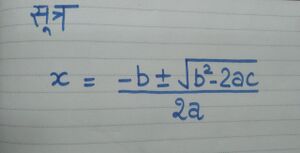 सूत्र
x = (-b ± √(b²-2ac)) / 2a